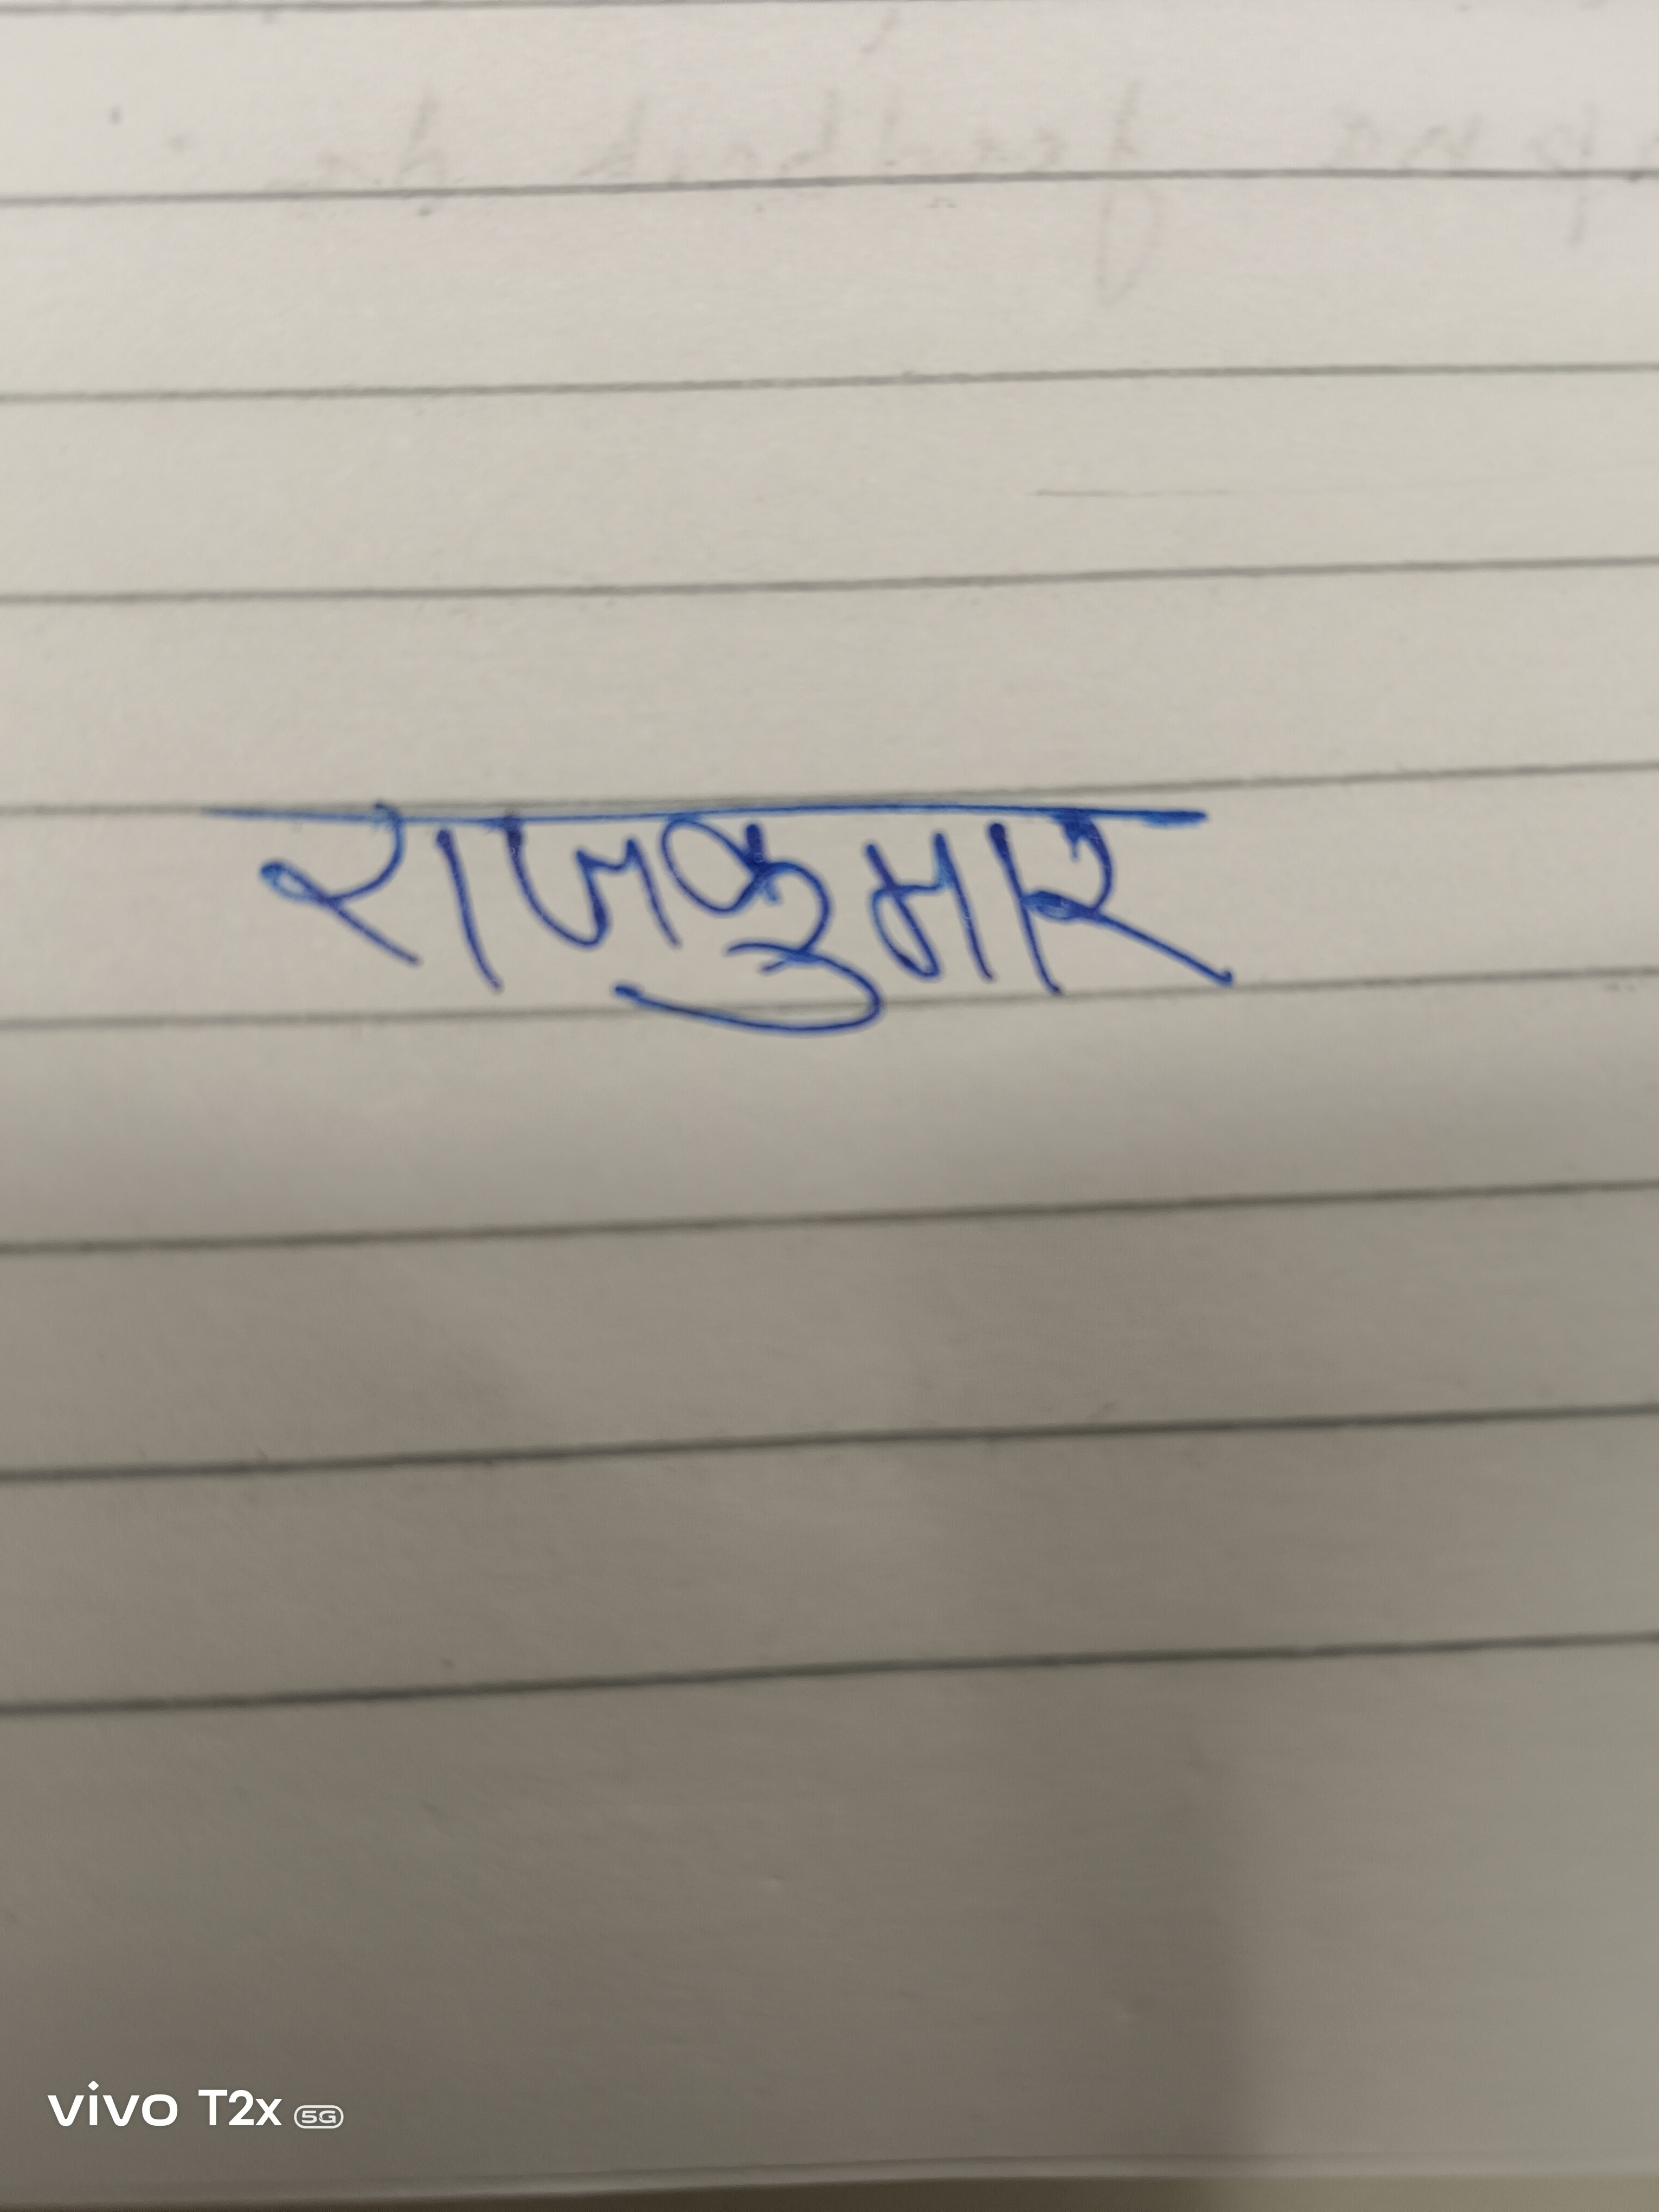 राजकुमार
vivo T2x 5G